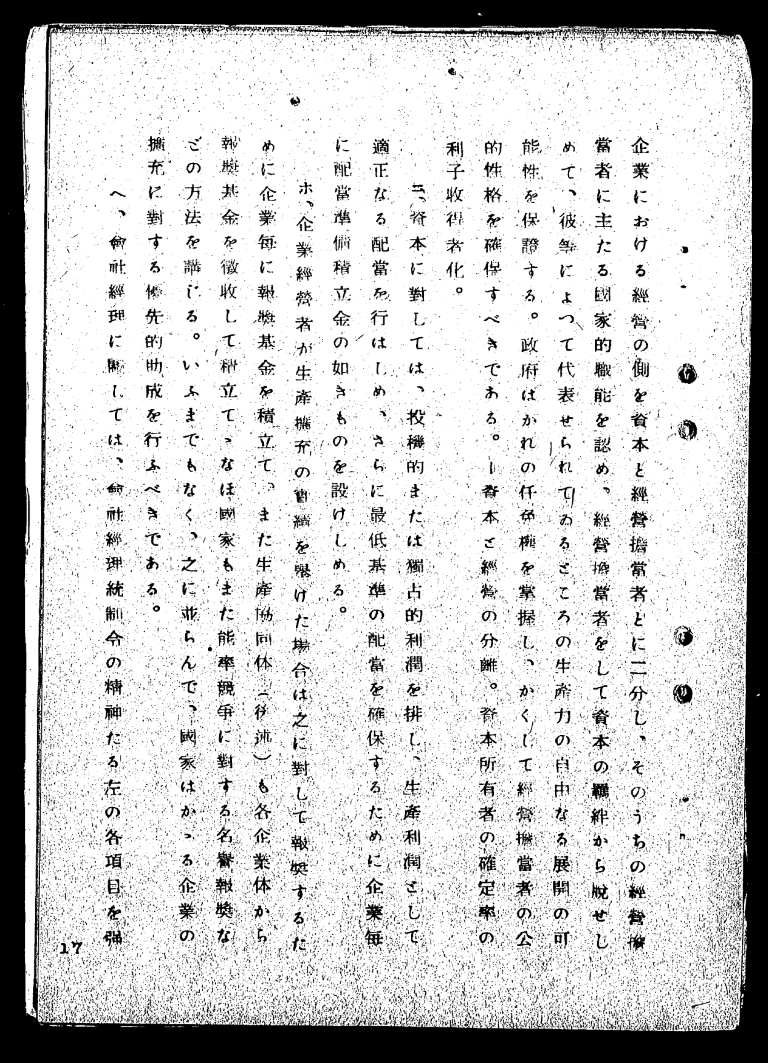 企業における經營の側を資本と經營擔當者とに二分し、そのうちの經營擔
當者に主たる國家的職能を認め、經營擔當者をして資本の羈絆から脫せし
めて、彼等によつて代表せられてゐるところの生產力の自由なる展開の可
能性を保證する。政府はかれの任免權を掌握し、かくして經營擔當者の公
的性格を確保すべきである。ー資本と經營の分離。資本所有者の確定率の
利子收得者化。
ニ、資本に對しては、投機的または獨占的利潤を排し、生產利潤として
適正なる配當を行はしめ、さらに最低基準の配當を確保するために企業每
に配當準備積立金の如きものを設けしめる。
ホ、企業經營者が生產擴充の實績を擧げた場合は之に對して報奬するた
めに企業每に報奬基金を積立て、また生產協同体（後述）も各企業体から
報奬基金を徵收して積立てゝなほ國家もまた能率競爭に對する名譽報奬な
どの方法を講じる。いふまでもなく、之に並らんで、國家はかゝる企業の
擴充に對する優先的助成を行ふべきである。
ヘ、會社經理に關しては、會社經理統制令の精神たる左の各項目を強
17